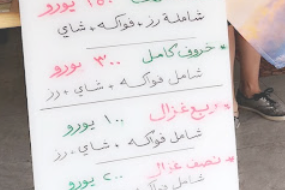 ١٥٠ يورو
شاملة رز + فواكه + شاي
* خروف كامل ٣٠٠ يورو
شامل فواكه + شاي + رز
* ربع غزال ١٠٠ يورو
شامل فواكه + شاي + رز
* نصف غزال ٢٠٠ يورو
شامل فواكه